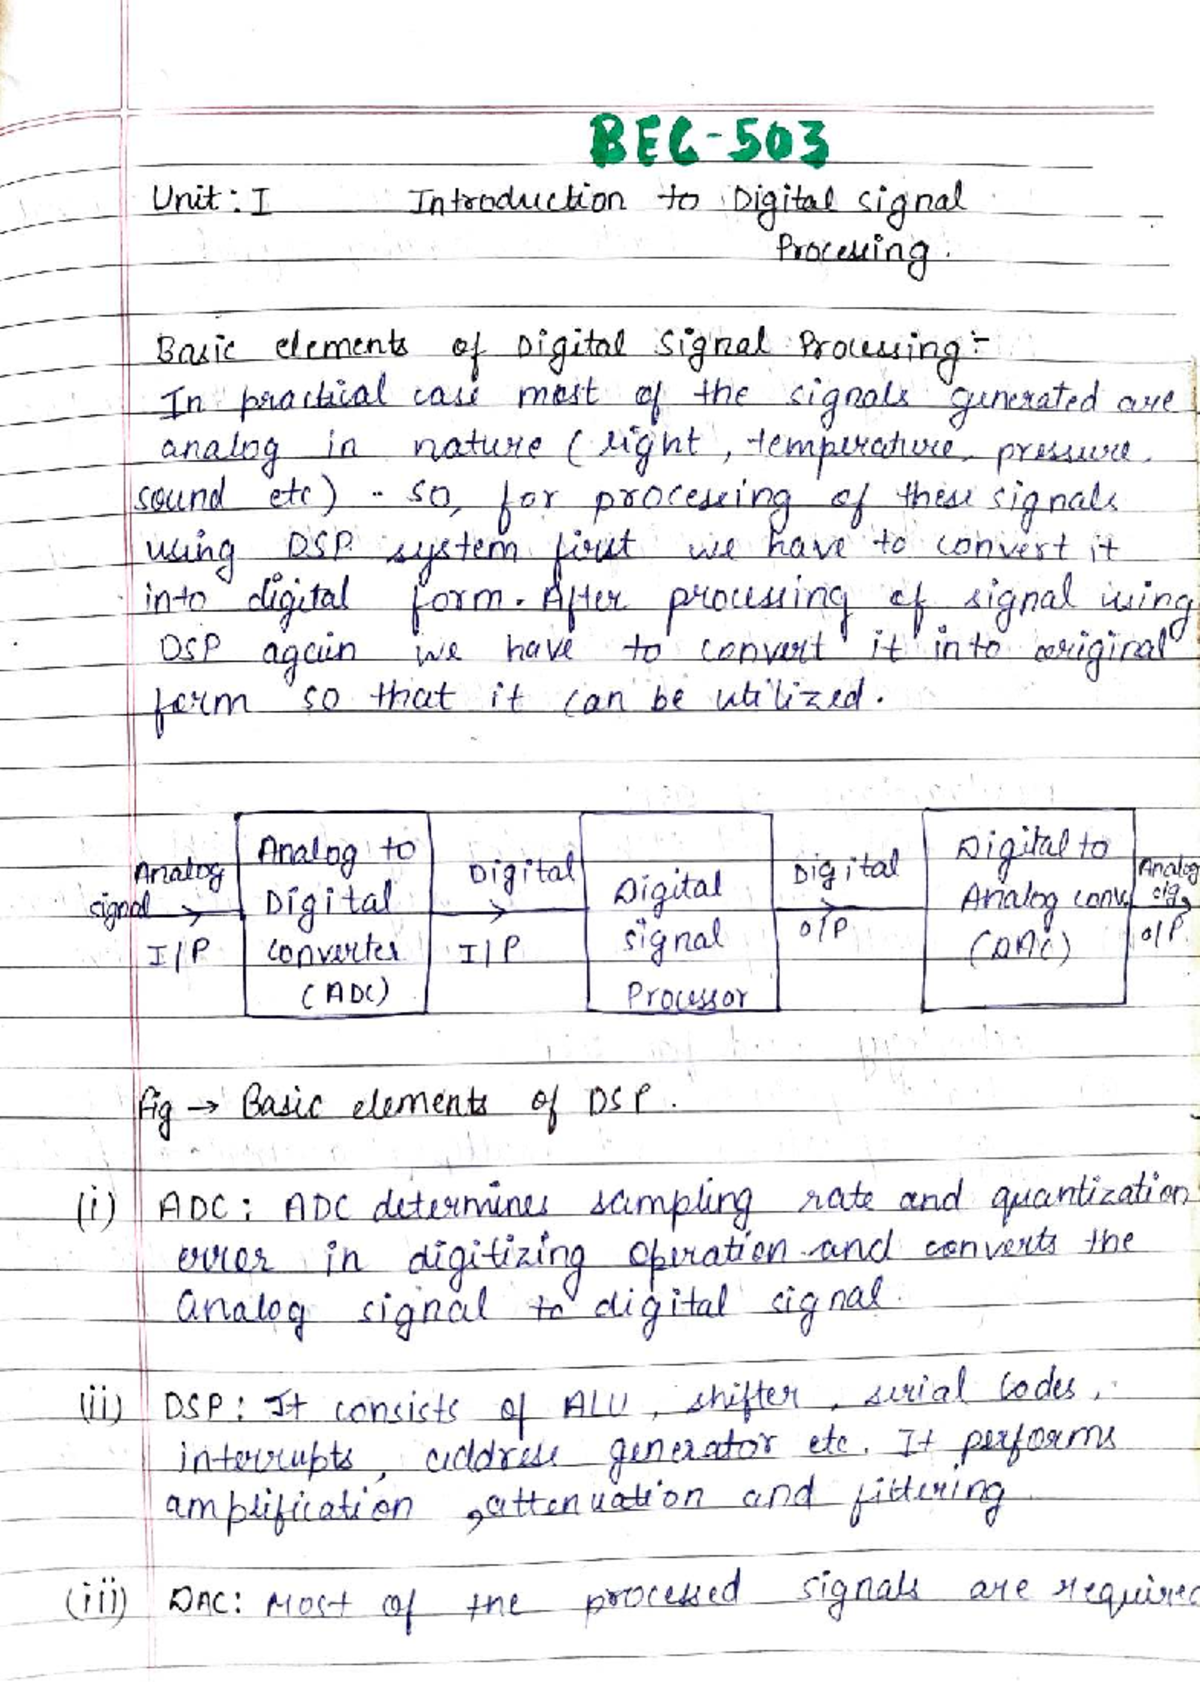 BEC-503
Unit : I Introduction to Digital signal
Processing.
Basic elements of Digital Signal Processing :-
In practical case most of the signals generated are
analog in nature ( light , temperature, pressure,
sound etc) . so, for processing of these signals
using DSP system first we have to convert it
into digital form. After processing of signal using
DSP again we have to convert it into original
form so that it can be utilized.
Analog
signal
I/P
Analog to
Digital
converter
(ADC)
Digital
I/P
Digital
signal
Processor
Digital
O/P
Digital to
Analog conv.
(DAC)
Analog
sig
O/P
Fig → Basic elements of DSP.
(i) ADC : ADC determines sampling rate and quantization
error in digitizing operation and converts the
analog signal to digital signal.
(ii) DSP : It consists of ALU, shifter, serial codes,
interrupts, address generator etc. It performs
amplification , attenuation and filtering
(iii) DAC : Most of the processed signals are required